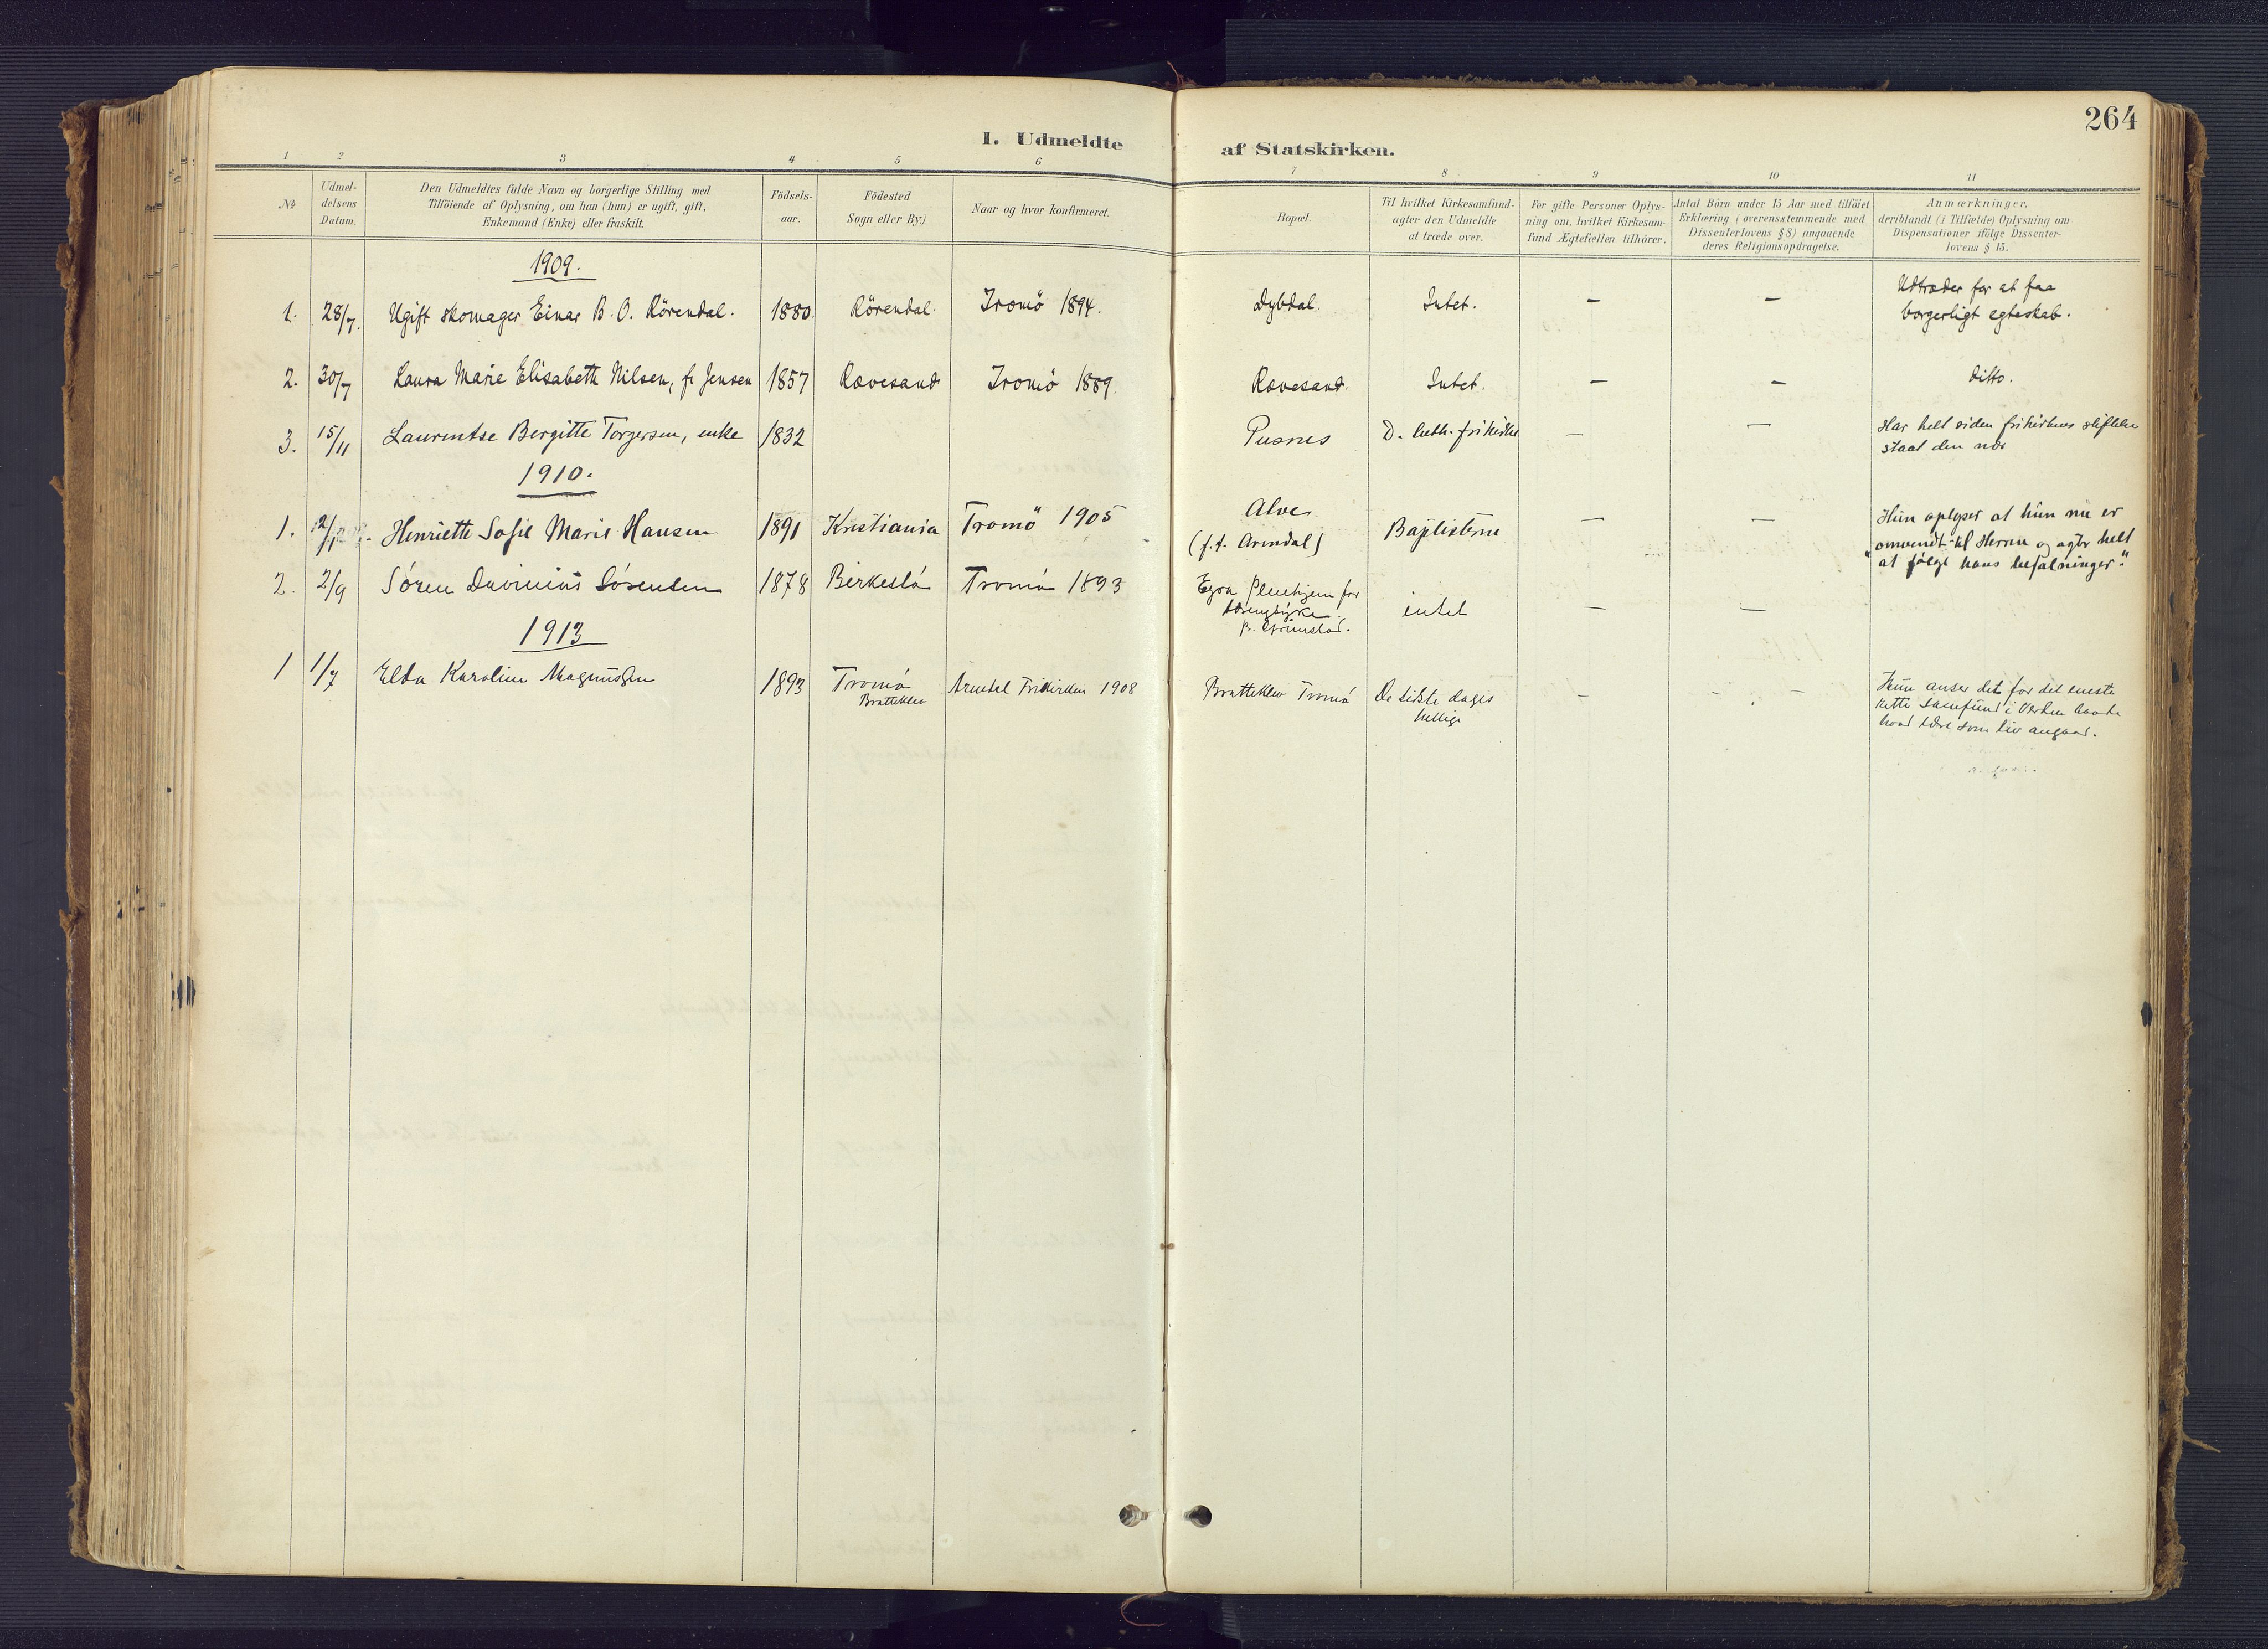 264
I. Udmeldte af Statskirken.
1 2 3 4 5 6 7 8 9 10 11
No
Udmeldelsens Datum.
Den Udmeldtes fulde Navn og borgerlige Stilling med
Tilföiende af Oplysning, om han (hun) er ugift, gift,
Enkemand (Enke) eller fraskilt.
Födselsaar.
Födested
Sogn eller By.)
Naar og hvor konfirmeret.
Bopæl.
Til hvilket Kirkesamfund
agter den Udmeldte
at træde over.
For gifte Personer Oplys-
ning om, hvilket Kirkesam-
fund Ægtefællen tilhörer.
Antal Börn under 15 Aar med tilföiet
Erklæring (overensstemmende med
Dissenterlovens § 8) angaaende
deres Religionsopdragelse.
Anmærkninger,
deriblandt (i Tilfælde) Oplysning om
Dispensationer ifölge Dissenter-
lovens § 15.
1909.
1. 28/7. Ugift skomager Einar B. O. Rörendal. 1880. Rörendal. Tromö 1894. Dybdal. Intet. - - Udtræder for at faa
borgerligt egteskab.
2. 30/7 Laura Marie Elisabeth Nilsen, f. Jensen 1857 Rævesand Tromö 1889. Rævesand. Intet. - - ditto.
3. 15/11 Laurentse Bergitte Torgersen, enke 1832 Pusnes D. luth. frikirke - - Har helt siden frikirkens stiftelse
staat den nær
1910.
1. 12/1 Henriette Sofie Marie Hansen 1891 Kristiania Tromö 1905 Alve
(f.t. Arendal) Baptisterne - - Hun oplyser at hun nu er
"omvendt til Herren og agter helt
at følge hans befalninger".
2. 2/9 Sören Davinius Sörensen 1878 Birkeslö Tromö 1893 Egra Pleiehjem for
p. Grimstad. intet - -
1913
1 1/7 Elda Karoline Magnussen 1893 Tromö
Bratteklev Arendal Frikirken 1908 Bratteklev Tromö De sidste dages
hellige - - - Hun anser det for det eneste
rette samfund i verden baade
hvad lære som liv angaar.